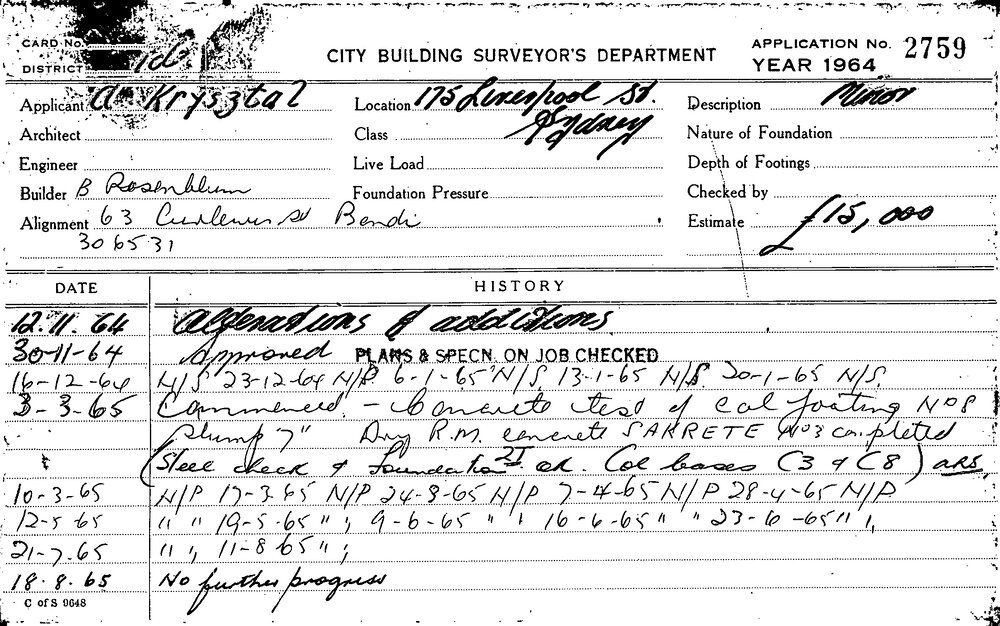 CARD No.
DISTRICT
CITY BUILDING SURVEYOR'S DEPARTMENT
APPLICATION No. 2759
YEAR 1964
Applicant A Krysztal
Location 175 Liverpool St.
Sydney
Description Minor
Architect
Class
Nature of Foundation
Engineer
Live Load
Depth of Footings
Builder B Rosenblum
Foundation Pressure
Checked by
Alignment 63 Curlewis St Bondi
306531
Estimate £15,000
DATE HISTORY
12.11.64 Alterations & additions
30-11-64 Approved PLANS & SPECN. ON JOB CHECKED
16-12-64 N/S 23-12-64 N/P 6-1-65 N/S 13-1-65 N/S 20-1-65 N/S
3-3-65 Commenced - Concrete test of col footing No 8
slump 7" Dry R.M. concrete SAKRETE No 3 completed
(Steel check & Foundation ok. Col bases C3 & C8) ARS
10-3-65 N/P 17-3-65 N/P 24-3-65 N/P 7-4-65 N/P 28-4-65 N/P
12-5-65 " " 19-5-65 " " 9-6-65 " " 16-6-65 " " 23-6-65 " "
21-7-65 " " 11-8-65 " "
18.8.65 No further progress
C of S 9648